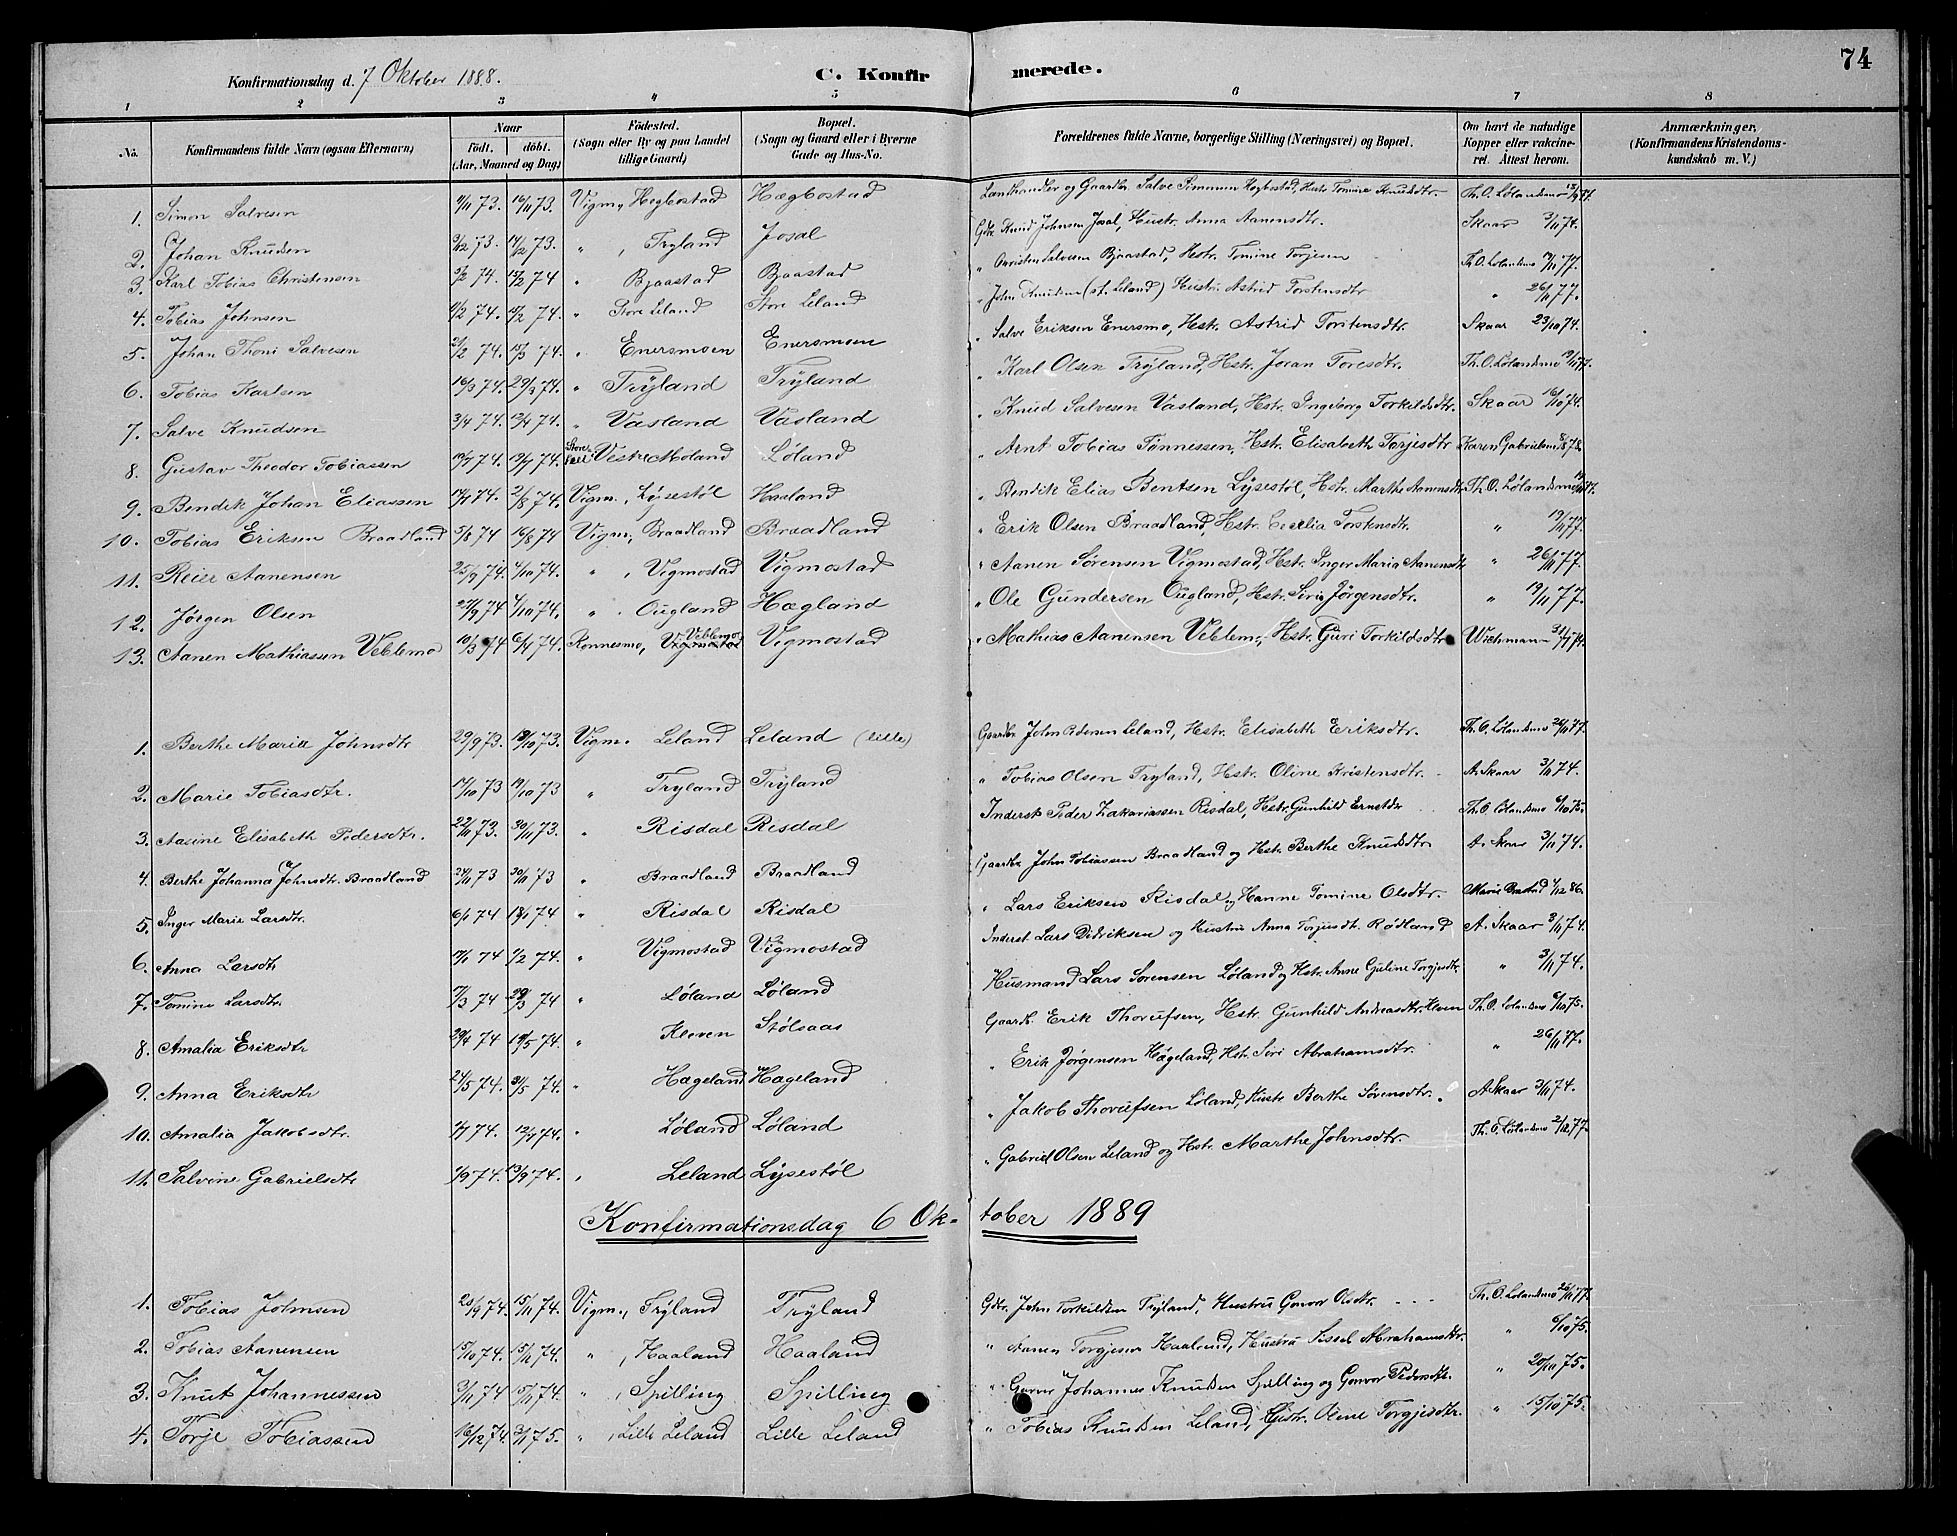 74
Konfirmationsdag d. 7 Oktober 1888.
C. Konfirmerede.
1 2 3 4 5 6 7 8
No.
Konfirmandens fulde Navn (ogsaa Efternavn)
Naar
Födt. döbt.
(Aar, Maaned og Dag)
Födested.
(Sogn eller By og paa Landet tillige Gaard)
Bopæl.
(Sogn og Gaard eller i Byerne Gade og Hus-No.
Forældrenes fulde Navne, borgerlige Stilling (Næringsvei) og Bopæl.
Om havt de naturlige Kopper eller vakcineret. Attest herom.
Anmærkninger,
(Konfirmandens Kristendomskundskab m. V.)
1. Simon Salvesen 73. 16/11 73. Vigm., Hegbostad Hægbostad Landhandler og Gaardbr. Salve Simonsen Hegbostad, Hstr. Tomine Knudsdtr. Th. O. Lølandsmo
2. Johan Knudsen 9/12 73. 73. " , Tryland Josal Gdb. Knud Johnsen Josal, Hustr. Anna Aanensdtr. Skaar 3/11 74.
3. Karl Tobias Christensen 74. 74 " Bjaastad Bjaastad " Christen Salvesen Bjaastad, Hstr. Tomine Torjesen Th. O. Lølandsmo 77.
4. Tobias Johnsen 74. 74. " Store Leland Store Leland " John Knudsen (st. Leland) Hustru Astrid Torstensdtr " 26/11 77.
5. Johan Thoni Salvesen 74. 15/3 74. " Enersmoen Enersmoen " Salve Eriksen Enersmo, Hstr. Astrid Torstensdtr. Skaar 23/10 74.
6. Tobias Karlsen 16/3 74. 29/3 74. " Trÿland Trÿland " Karl Olsen Trÿland, Hstr. Joran Toresdtr. Th. O. Lølandsmo 19/11 77.
7. Salve Knudsen 3/4 74. 12/4 74. " Vasland Vasland " Knud Salvesen Vasland, Hstr. Ingeborg Torkildsdtr. Skaar 16/10 74.
8. Gustav Theodor Tobiassen 74. 74. Vestre Moland Løland " Arnt Tobias Tønnessen, Hstr. Elisabeth Torjesdtr Karen Gabrielsen 78.
9. Bendik Johan Eliassen 74. 2/8 74. Vigm., Lÿsestøl Haaland " Bendik Elias Bentsen Lÿsestøl, Hstr. Marthe Aanensdtr Th. O. Lølandsmo
10. Tobias Eriksen Braadland 5/8 74 16/8 74 Vigm., Braadland Braadland " Erik Olsen Braadland, Hstr. Cecelia Torstensdtr. " 19/11 77.
11. Reier Aanensen 25/9 74. 4/10 74. " , Vigmostad Vigmostad " Aanen Sørensen Vigmostad, Hstr. Inger Maria Aanensdtr " 26/11 77.
12. Jørgen Olsen 27/9 74 4/10 74. " , Ougland Hægland " Ole Gundersen Ougland, Hstr. Siri Jörgensdtr. " 19/11 77.
13. Aanen Mathiassen Veblemo 10/3 74 6/4 74. Konnesmo, Veblemo Vigmostad Vigmostad " Mathias Aanensen Veblem., Hstr. Guri Torkildsdtr Wichmann 74.
1. Berthe Marie Johnsdtr 29/9 73. 19/10 73. Vigm. Leland Leland (lille) Gaardbr. John Pedersen Leland, Hstr. Elisabeth Eriksdtr. Th. O. Lølandsmo 26/11 77.
2. Marie Tobiasdtr. 17/10 73 19/10 73 " Trÿland Trÿland " Tobias Olsen Tryland, Hstr. Oline Kristensdtr. A. Skaar 3/11 74.
3. Aasine Elisabeth Pedersdtr. 22/11 73. 30/11 73. " Risdal Risdal Inderst Peder Zakariassen Risdal, Hstr. Gunhild Ernstdr Th. O. Lølandsmo 6/10 75.
4. Berthe Johanna Johnsdtr. Braadland 73 30/11 73 " Braadland Braadland Gaardbr. John Tobiassen Braadland og Hstr. Berthe Knudsdtr. A. Skaar 3/11 74.
5. Inger Marie Larsdtr. 6/1 74 18/1 74 " Risdal Risdal " Lars Eriksen Risdal og Hanne Tomine Olsdtr. Marie 86.
6. Anna Larsdtr 74 1/2 74. " Vigmostad Vigmostad Inderst Lars Didriksen og Hustru Anna Torjusdtr. Rødland A. Skaar 3/11 74.
7. Tomine Larsdtr. 7/3 74 29/3 74 " Løland Løland Husmand Lars Sørensen Løland og Hstr. Anne Guline Torgjesdtr. " 3/11 74.
8. Amalia Eriksdtr 29/4 74 74. " Kleven Stølsaas Gaardb. Erik Thorufsen, Hstr. Gunhild Andreasdtr. Kleven Th. O. Lølandsmo 6/10 75.
9. Anna Eriksdtr 24/5 74. 31/5 74. " Hægeland Hægeland " Erik Jørgensen Hægeland, Hstr. Siri Abrahamsdtr. " 26/11 77.
10. Amalia Jakobsdtr. 74. 12/7 74. " Løland Løland " Jakob Thorufsen Løland, Hustr. Berthe Sørensdtr. A. Skaar 3/11 74.
11. Salvine Gabrielsdtr 1/9 74. 13/9 74. " Leland Lÿsestøl " Gabriel Olsen Leland og Hstr. Marthe Johnsdtr. Th. O. Lølandsmo 77.
Konfirmationsdag 6 Oktober 1889
1. Tobias Johnsen 20/9 74. 15/11 74. Vigm., Trÿland Trÿland Gdbr. John Torkildsen Trÿland, Hustru Gunvor Olsdtr. Th. O. Lølandsmo 26/11 77.
2. Tobias Aanensen 15/10 74. 15/11 74. " , Haaland Haaland " Aanen Torgjesen Haaland, Hustru Sissel Abrahamsdtr. " 6/10 75.
3. Knut Johannessen 3/11 74 15/11 74. " , Spilling Spilling " Johannes Knudsen Spilling og Gunvor Pedersdtr. " 75.
4. Torje Tobiassen 16/12 74. 75. " , Lille Leland Lille Leland " Tobias Knudsen Leland, Hustr. Oline Torgjesdtr. " 15/10 75.